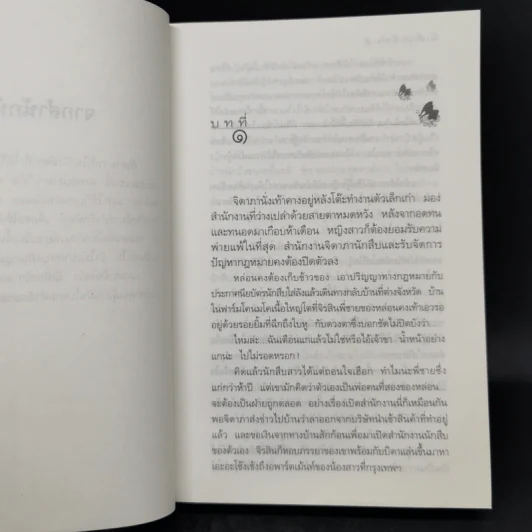 จากสำนัก
บทที่
๑
จิดาภานั่งเท้าคางอยู่หลังโต๊ะทำงานตัวเล็กเก่า มอง
สำนักงานที่ว่างเปล่าด้วยสายตาหมดหวัง หลังจากอดทน
และทนอดมาเกือบห้าเดือน หญิงสาวก็ต้องยอมรับความ
พ่ายแพ้ในที่สุด สำนักงานจิดาภานักสืบและรับจัดการ
ปัญหากฎหมายคงต้องปิดตัวลง
หล่อนคงต้องเก็บข้าวของ เอาปริญญาทางกฎหมายกับ
ประกาศนียบัตรนักสืบใส่ลังแล้วเดินทางกลับบ้านที่ต่างจังหวัด บ้าน
ในฟาร์มโคนมโคเนื้อใหญ่โตที่จิรสินพี่ชายของหล่อนคงเท้าเอวรอ
อยู่ด้วยรอยยิ้มที่ฉีกถึงใบหู กับดวงตาซึ่งบอกชัดไม่ปิดบังว่า
ไหมล่ะ ฉันเตือนแกแล้วไม่ใช่หรือไอ้เจ้าขา น้ำหน้าอย่าง
แกน่ะ ไปไม่รอดหรอก!
คิดแล้วนักสืบสาวได้แต่ถอนใจเฮือก ทำไมนะพี่ชายซึ่ง
แก่กว่าห้าปี แต่เขามักคิดว่าตัวเองเป็นพ่อคนที่สองของหล่อน...
จะต้องเป็นฝ่ายถูกตลอด อย่างเรื่องเปิดสำนักงานนี่ก็เหมือนกัน
พอจิดาภาส่งข่าวไปบ้านว่าลาออกจากบริษัทนำเข้าสินค้าที่ทำอยู่
แล้ว และขอเงินจากทางบ้านสักก้อนเพื่อมาเปิดสำนักงานนักสืบ
ของตัวเอง จิรสินก็หอบภรรยาของเขาพร้อมกับบิดาแล่นขึ้นมาหา
เอะอะโช้งเช้งถึงอพาร์ตเม้นท์ของน้องสาวที่กรุงเทพฯ